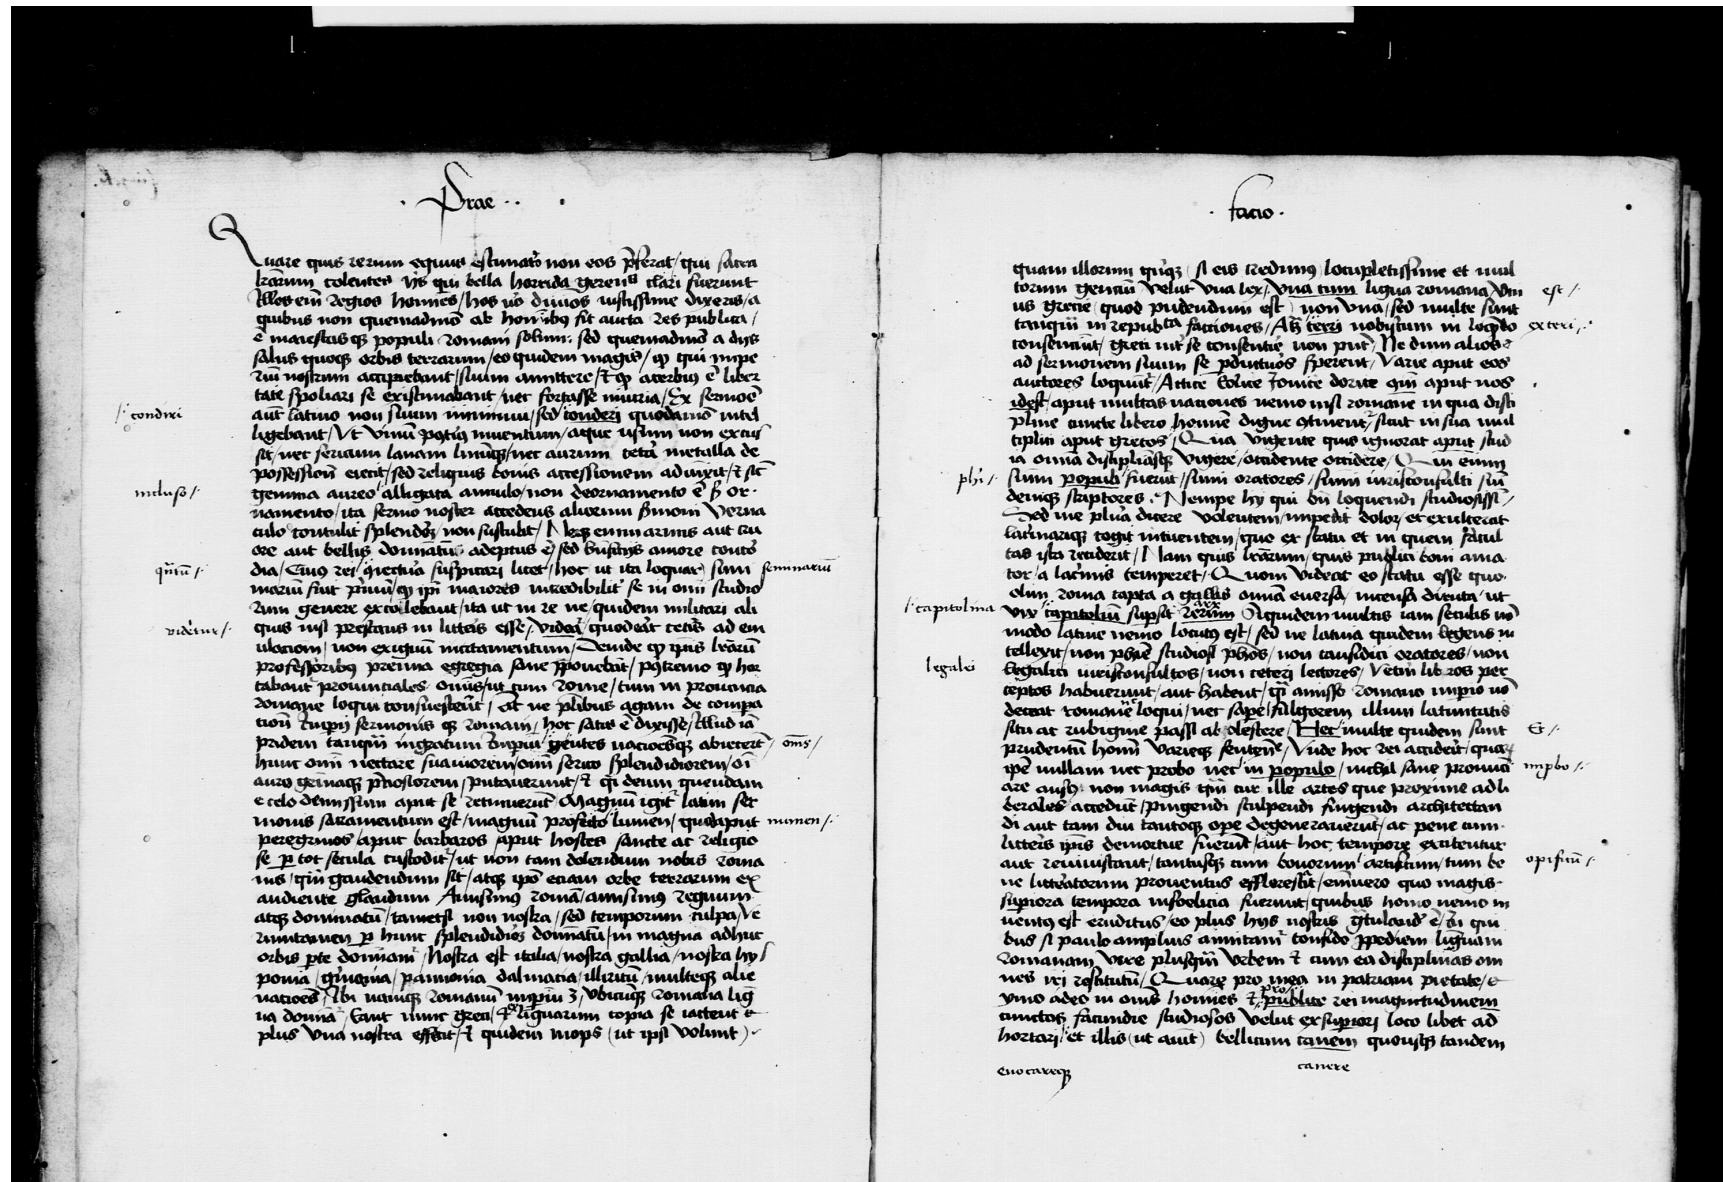 · Prae · ·
Quare quis rerum equus estimator non eos p̄ferat / qui sacra
lr̄arum colentes ijs qui bella horrida gerentes clari fuerunt
Illos em̄ regios homines / hos v̄o diuinos iustissime dixeris / a
quibus non quemadmodū ab hominibus sit aucta res publica /
ē maiestasqꝫ populi romani solum: sed quemadmodū a dijs
salus quoqꝫ orbis terrarum / eo quidem magis / qꝫ qui impe
riū nostrum accipiebant / suum amittere / et qꝫ acerbius ē liber
tate spoliari se existimabant / nec fortasse iniuria / Ex sermone
aūt latino non suum imminui / sed conderi quodāmō intel
/· condiri
ligebant / Vt vinū postius inuentum / aque usum non excus
sit / nec sericum lanam linūqꝫ / nec aurum cetera metalla de
possessione eiecit / sed reliquis bonis accessionem adiunxit / et sic̄
gemma aureo alligata annulo / non deornamento ē sꝫ or·
incluso /·
namento / ita sermo noster accedens aliorum sermoni verna
culo contulit splendorē / non sustulit / Neqꝫ enim armis aut cru
ore aut bellis dominatū adeptus ē / sed beneficijs amore concor
dia / Cuius rei / quiectura suspicari licet / hoc ut ita loquar / sum
quantū /·
seminariū
marium fuit primū / qꝫ ipsi maiores incredibiliter se in omni studio
rum genere excollebant / ita ut in re ne / quidem militari ali
quis nisi prestans in litteris esse / videat / quodeat ceteris ad em
videretur /·
ulacionem / non exiguum incitamentum / Deinde qꝫ ipsis lr̄arum
professoribus premia egregia sane proponebāt / postremo qꝫ hor
tabant prouinciales omnes / ut cum rome / tum in prouincia
romane loqui consuescerent / At ne pluribus agam de compa
tione imperij sermonis qꝫ romani / hoc satis ē dixisse / Illud iā
pridem tanquam ingratum imperiū / gentes nacionesqꝫ abiecerūt
/ om̄s /
hunc omni nectare suauiorem / omni serico splendidiorem / oī
auro gemmaqꝫ p̄ciosiorem / putauerunt / et quasi deum quendam
e celo demissum aput se retinuerūt Magnū igitur latini ser
monis sacramentum est / magnū profecto lumen / quodaput
numen /·
peregrinos / aput barbaros aput hostes sancte ac religio
se ꝑ tot secula custoditur / ut non tam dolendum nobis roma
nis / quam gaudendum sit / atqꝫ ipso eciam orbe terrarum ex
audiente gloriandum Amisimus romā / amisimus regnum
atqꝫ dominatū / tametsi non nostra / sed temporum culpa / Ve
runtamen ꝑ hunc splendidiorē dominatū / in magna adhuc
orbis parte dominamur / Nostra est italia / nostra gallia / nostra hys
pania / germania / pannonia dalmacia / illiricū / multeqꝫ alie
naciones / Ibi namqꝫ romanū imperiū ē / vbicunqꝫ romana lig
ua dominatur / Eant nunc greci / et linguarum copia se iactent
plus vna nostra efficit / et quidem inops (ut ipsi volunt)
· facio ·
quam illorum quinqꝫ (si eis credimus) locupletissime et mul
torum gencium velut vna lex / vna cum ligua romana / vni
est /·
us grecie (quod pudendum est) non vna / sed multe sunt
tanquam in republica facciones / Atqꝫ ceteri nobiscum in loquendo
exteri /·
consenciunt / greci int̄ se consentire non possunt / Ne dum alios
ad sermonem suum se perducturos sperent / Varie aput eos
auctores loquuntur / Attice Eolice Jonice dorice quam aput nos
idest / aput multas naciones nemo nisi romane in qua disci
pline cuncte libero homine digne continentur / sicut in sua mul
tiplici aput grecos / Qua vigente quis ignorat aput stud
ia omnia disciplinasqꝫ vigere / occidente occidere / Qui enim
summi populi fuerunt / summi oratores / summi iurisconsulti summi
phi /·
deniqꝫ scriptores · Nempe hy qui bene loquendi studiosissimi /
Sed me plura dicere volentem / impedit dolor / et exulcerat
lacrimariqꝫ cogit intuentem / quo ex statu et in quem facul
tas ista reciderit / Nam quis lr̄arum / quis publici boni ama
tor / a lacrimis temperet / Quom videat eo statu esse quo·
olim roma capta a gallis omnia euersa / incensa diruta / ut
vix capitoliū supsit rerum Siquidem multis iam seculis nō
/· capitolina
arx
modo latine nemo locutus est / sed ne latina quidem legens in
tellexit / non phīe studiosi phōs / non causidici oratores / non
legalici iurisconsultos / non ceteri lectores / Veterum libros per
legulei
ceptos habuerunt / aut habent / quasi amisso romano imperio nō
deceat romane loqui / nec sapere / fulgorem illum latinitatis
situ ac rubigine passi ab olescere / Hec multe quidem sunt
Et ·
prudentū hominum varieqꝫ sentencie / Vnde hoc rei acciderit / quarum
ipse nullam nec probo nec in populo / nichil sane pronunci
improbo /·
are ausus· non magis quam cur ille artes que proxime ad li
berales accedunt / pingendi sculpendi fingendi architectan
di aut tam diu tantoqꝫ opere degenerauerunt / ac pene cum·
litteris ipsis demortue fuerunt / aut hoc tempore excitentur
aut reuiuiscant / tantusqꝫ cum bonorum artificum / tum be
opificū /·
ne litteratorum prouentus efflorescat / enimuero quo magis·
superiora tempora infoelicia fuerunt / quibus homo nemo in
uentus est eruditus / eo plus hijs nostris gratulandum ē / in qui
bus si paulo amplius annitamur confido propediem linguam
romanam vere plusquam vrbem et cum ea disciplinas om
nes iri restitutū / Quare pro mea in patriam pietate / e
ymo adeo in omnes homines et publice rei magnitudinem
pro
cunctos facundie studiosos velut ex superiori loco libet ad
hortari / et illis (ut aiunt) bellicum canem quousqꝫ tandem
euocareqꝫ
canere